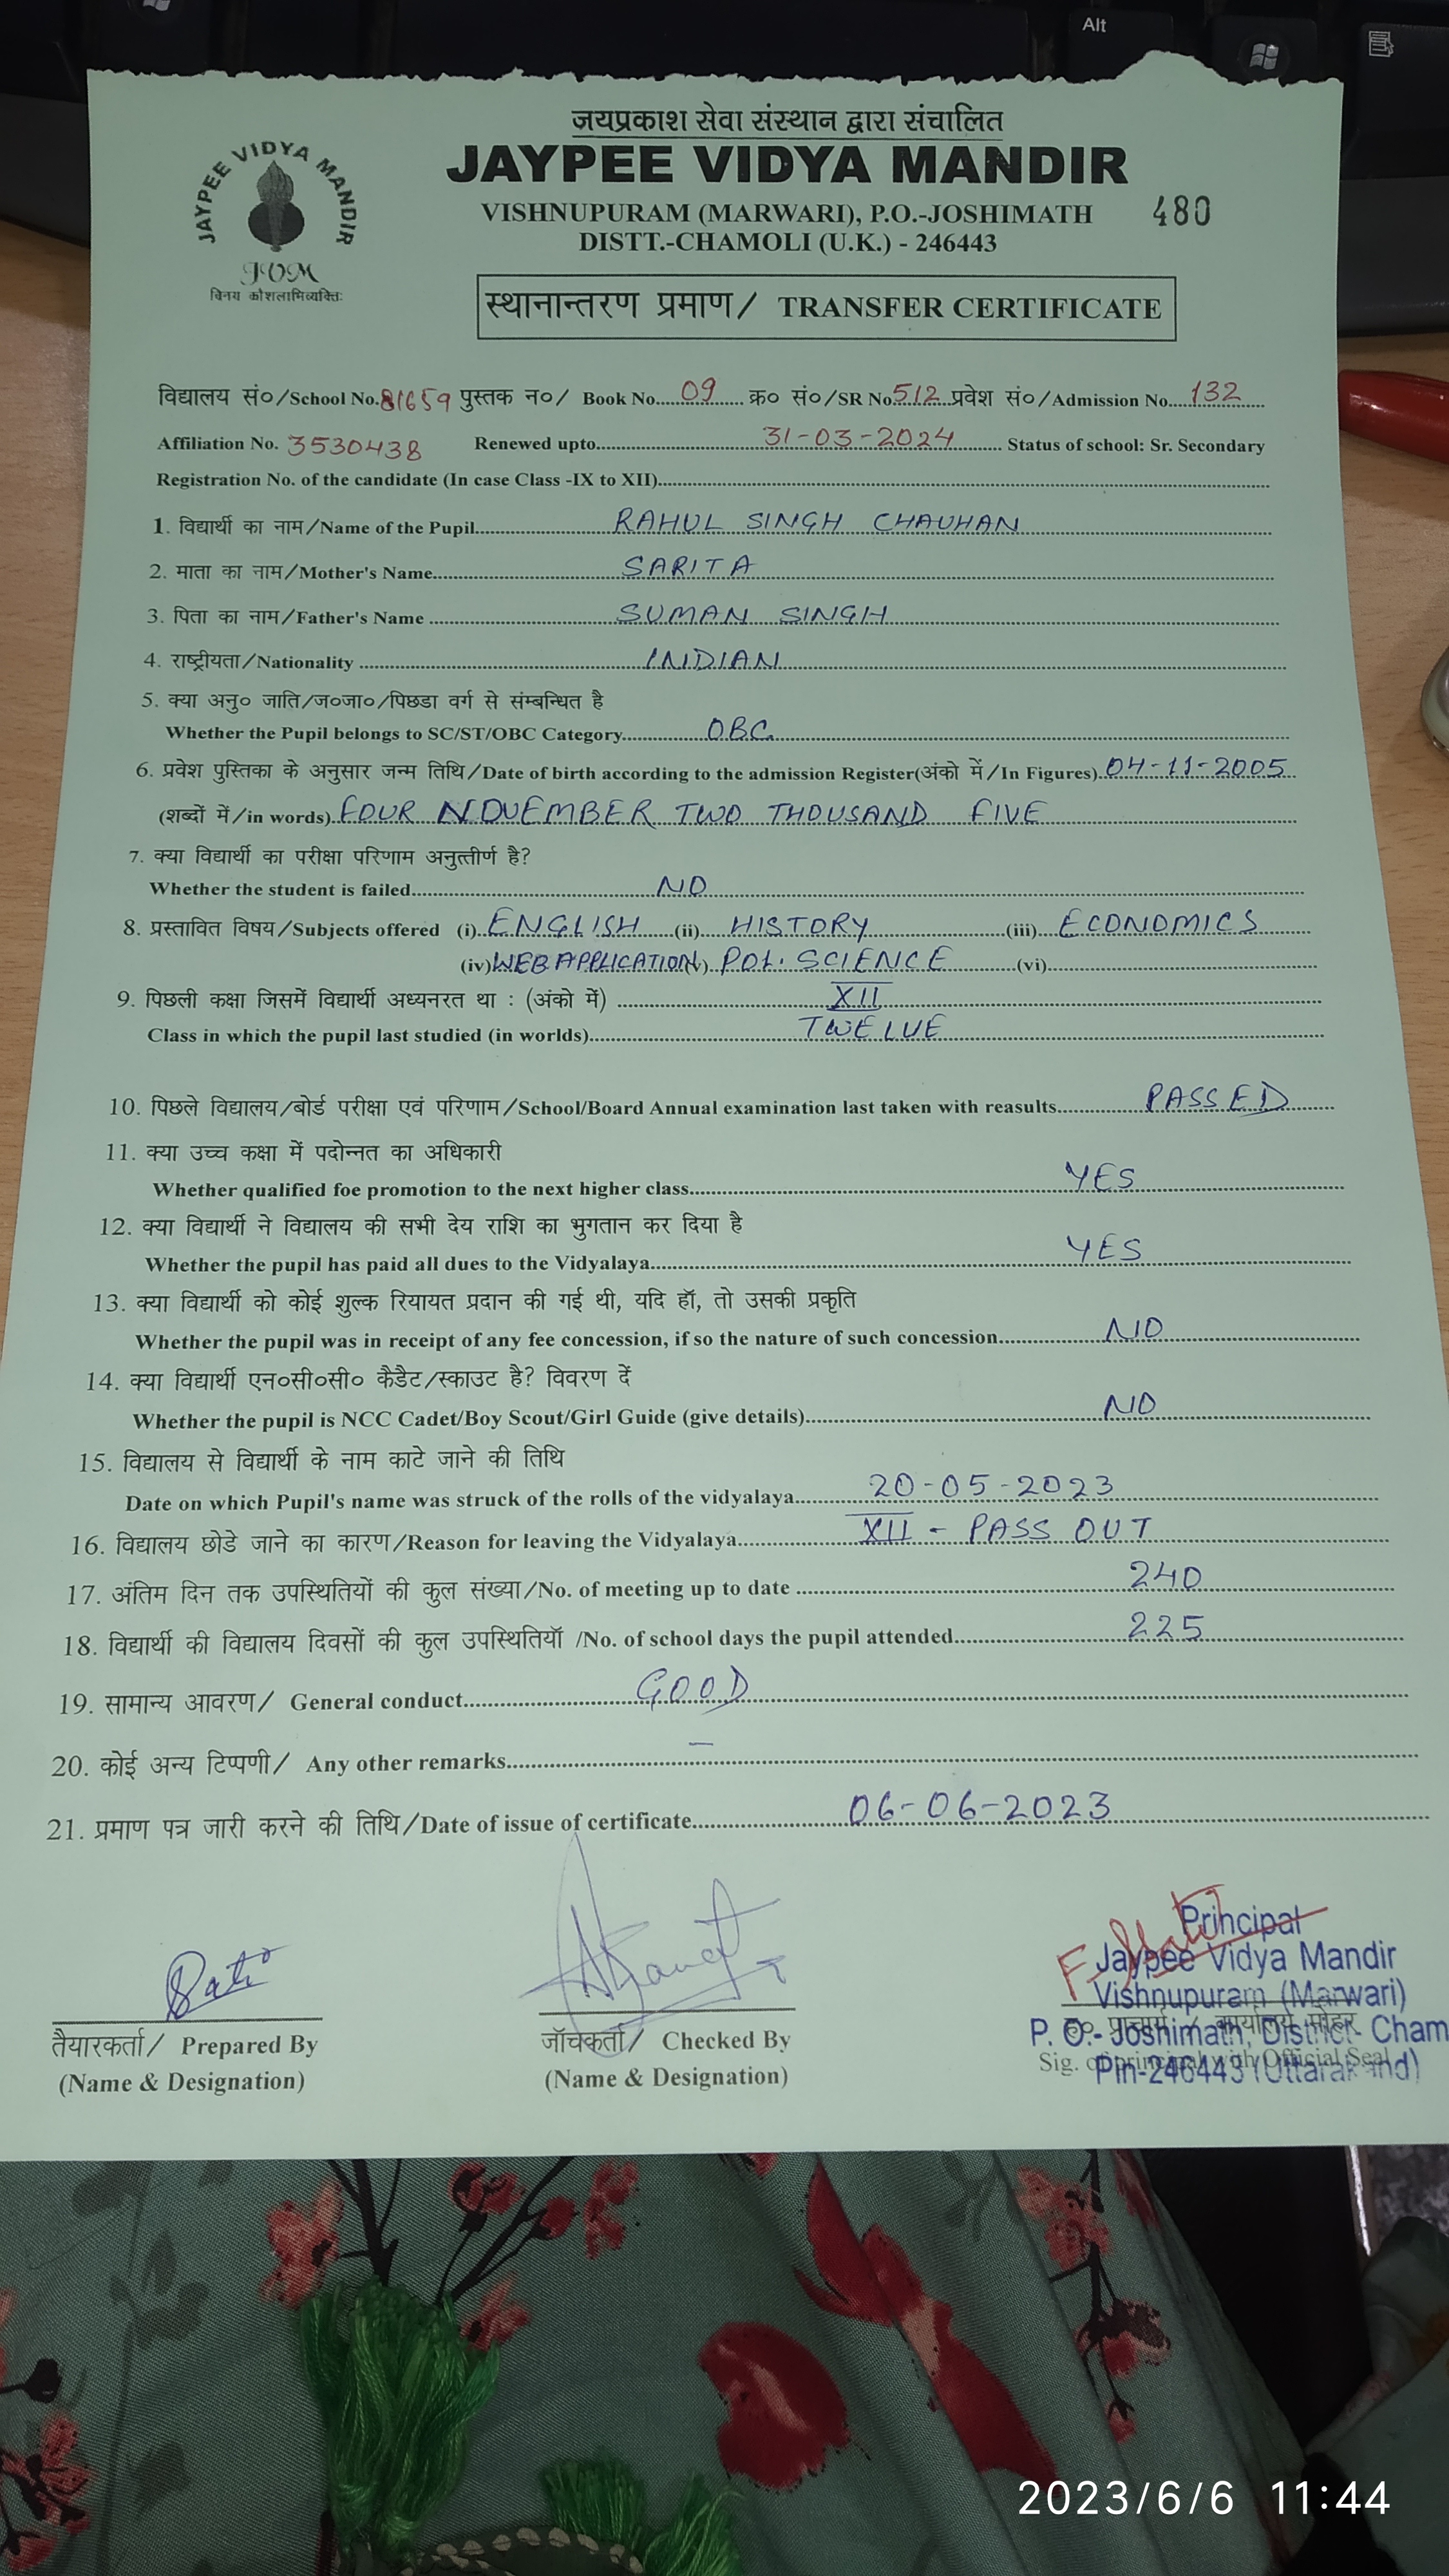 Alt
जयप्रकाश सेवा संस्थान द्वारा संचालित
JAYPEE VIDYA MANDIR
JAYPEE VIDYA MANDIR
VISHNUPURAM (MARWARI), P.O.-JOSHIMATH 480
DISTT.-CHAMOLI (U.K.) - 246443
JVM
विनय कौशलाभिव्यक्तिः
स्थानान्तरण प्रमाण/ TRANSFER CERTIFICATE
विद्यालय सं०/School No. 81659 पुस्तक न०/ Book No.... 09 .... क्र० सं०/SR No 512 प्रवेश सं०/Admission No.... 132 ....
Affiliation No. 3530438 Renewed upto.... 31-03-2024 .... Status of school: Sr. Secondary
Registration No. of the candidate (In case Class -IX to XII)....
1. विद्यार्थी का नाम/Name of the Pupil.... RAHUL SINGH CHAUHAN
2. माता का नाम/Mother's Name.... SARITA
3. पिता का नाम/Father's Name .... SUMAN SINGH
4. राष्ट्रीयता/Nationality .... INDIAN
5. क्या अनु० जाति/ज०जा०/पिछडा वर्ग से संम्बन्धित है
Whether the Pupil belongs to SC/ST/OBC Category.... OBC
6. प्रवेश पुस्तिका के अनुसार जन्म तिथि/Date of birth according to the admission Register(अंको में/In Figures) 04-11-2005
(शब्दों में/in words) FOUR NOVEMBER TWO THOUSAND FIVE
7. क्या विद्यार्थी का परीक्षा परिणाम अनुत्तीर्ण है?
Whether the student is failed.... NO
8. प्रस्तावित विषय/Subjects offered (i) ENGLISH (ii) HISTORY (iii) ECONOMICS
(iv) WEB APPLICATION (v) POL. SCIENCE (vi)....
9. पिछली कक्षा जिसमें विद्यार्थी अध्यनरत था : (अंको में) .... XII
Class in which the pupil last studied (in worlds).... TWELVE
10. पिछले विद्यालय/बोर्ड परीक्षा एवं परिणाम/School/Board Annual examination last taken with reasults.... PASSED
11. क्या उच्च कक्षा में पदोन्नत का अधिकारी
Whether qualified foe promotion to the next higher class.... YES
12. क्या विद्यार्थी ने विद्यालय की सभी देय राशि का भुगतान कर दिया है
Whether the pupil has paid all dues to the Vidyalaya.... YES
13. क्या विद्यार्थी को कोई शुल्क रियायत प्रदान की गई थी, यदि हॉ, तो उसकी प्रकृति
Whether the pupil was in receipt of any fee concession, if so the nature of such concession.... NO
14. क्या विद्यार्थी एन०सी०सी० कैडैट/स्काउट है? विवरण दें
Whether the pupil is NCC Cadet/Boy Scout/Girl Guide (give details).... NO
15. विद्यालय से विद्यार्थी के नाम काटे जाने की तिथि
Date on which Pupil's name was struck of the rolls of the vidyalaya.... 20-05-2023
16. विद्यालय छोडे जाने का कारण/Reason for leaving the Vidyalaya.... XII - PASS OUT
17. अंतिम दिन तक उपस्थितियों की कुल संख्या/No. of meeting up to date .... 240
18. विद्यार्थी की विद्यालय दिवसों की कुल उपस्थितियॉ /No. of school days the pupil attended.... 225
19. सामान्य आवरण/ General conduct.... GOOD
20. कोई अन्य टिप्पणी/ Any other remarks.... –
21. प्रमाण पत्र जारी करने की तिथि/Date of issue of certificate.... 06-06-2023
Principal
Jaypee Vidya Mandir
Vishnupuram (Marwari)
P. O.- Joshimath, District Cham
Pin-246443 (Uttarakhand)
तैयारकर्ता/ Prepared By
(Name & Designation)
जॉचकर्ता/ Checked By
(Name & Designation)
Sig. of principal with Official Seal
2023/6/6 11:44